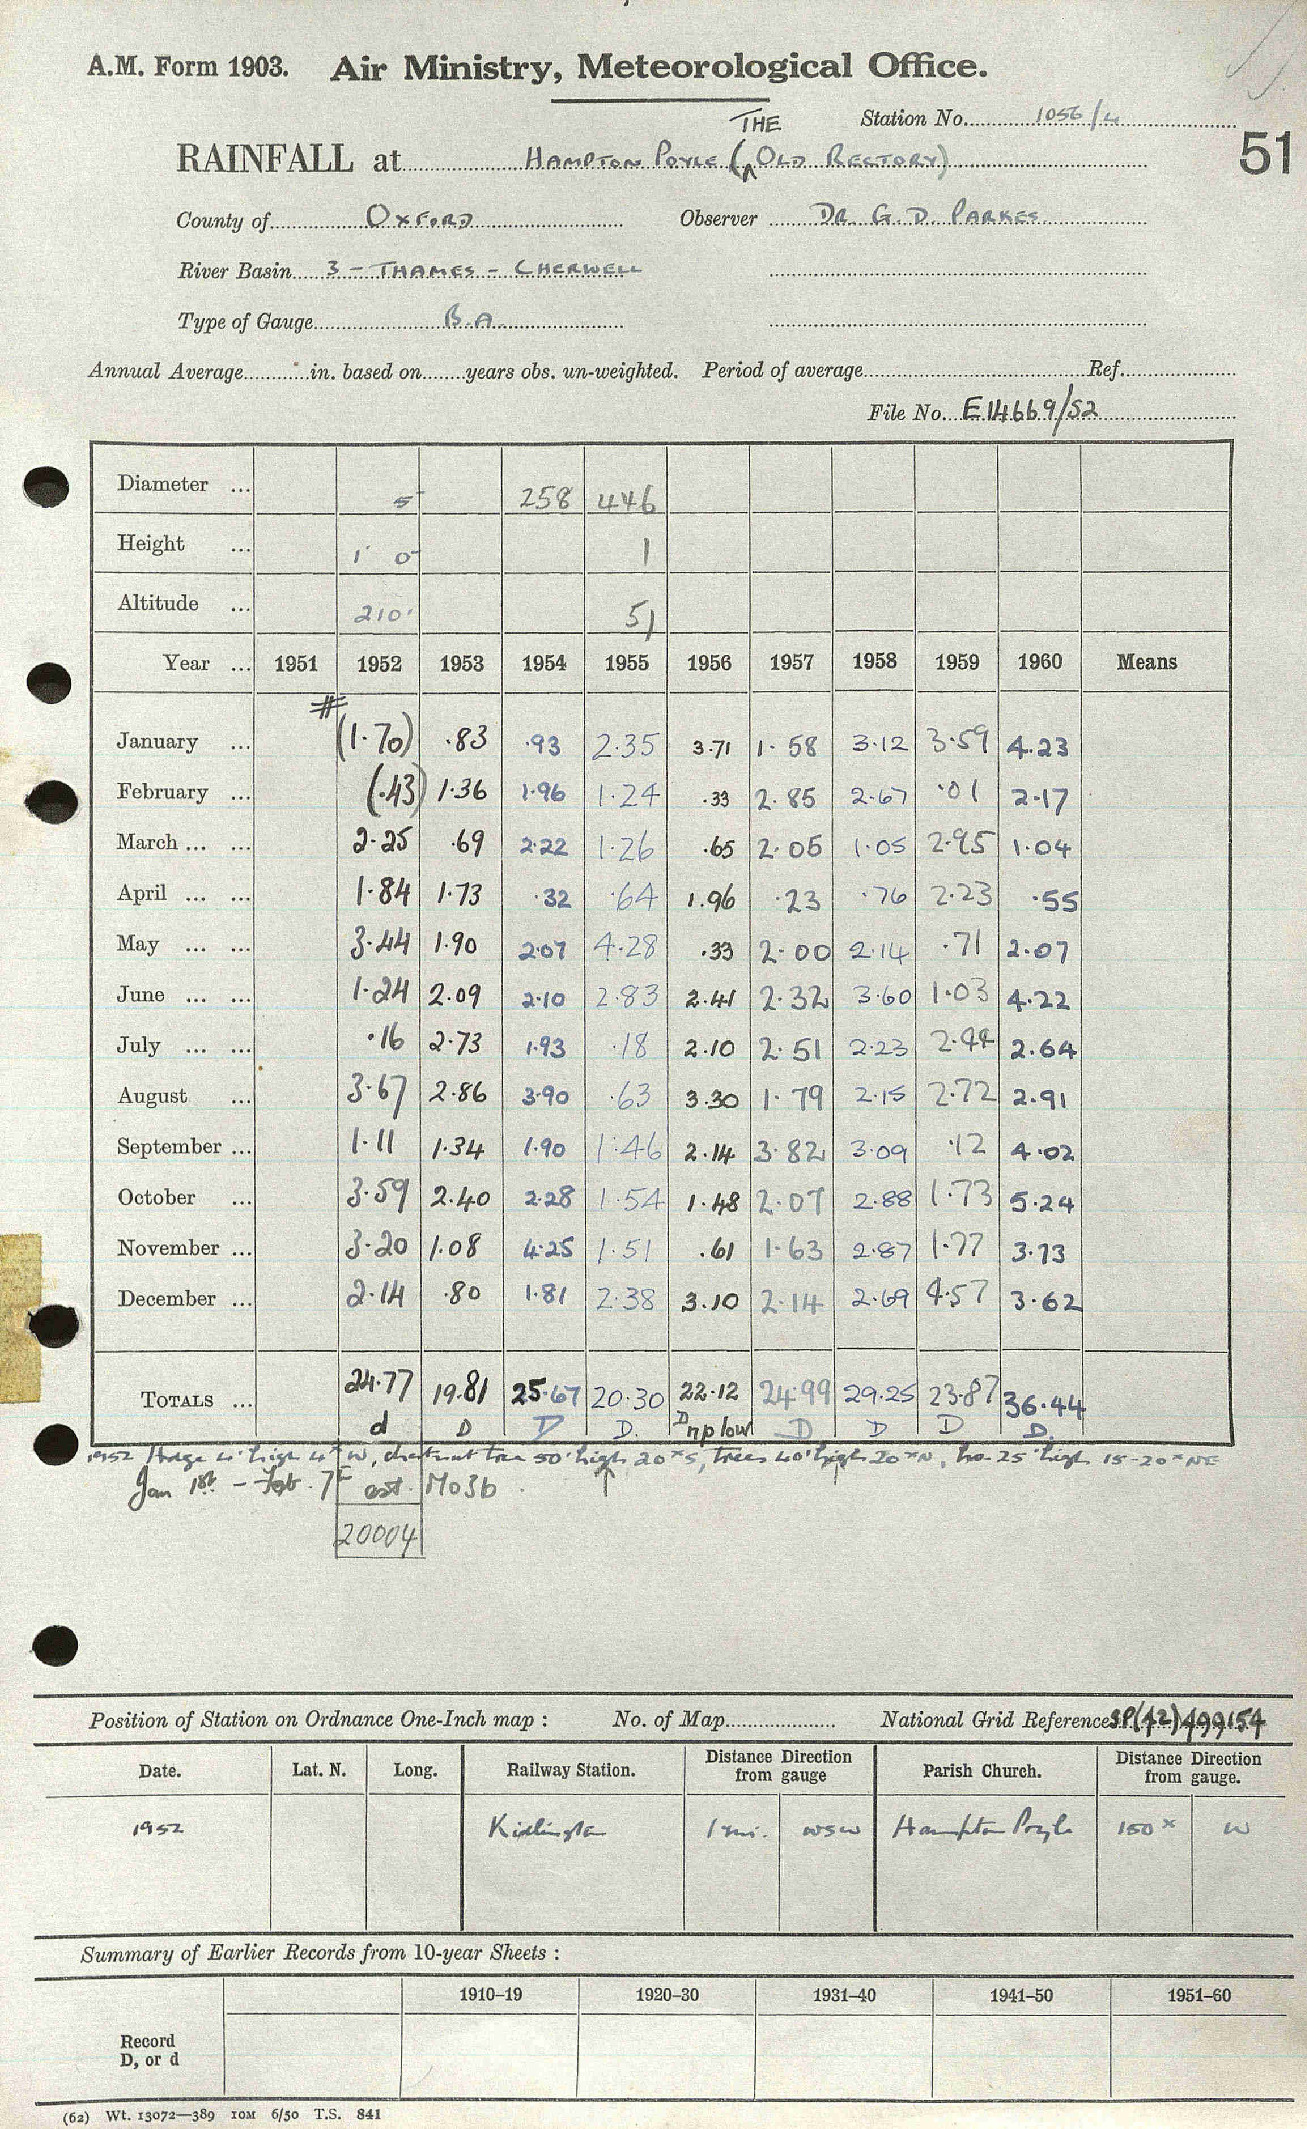 A.M. Form 1903. Air Ministry, Meteorological Office.
Station No. 1056/4
THE
RAINFALL at HAMPTON POYLE (OLD RECTORY)
51
County of OXFORD Observer DR G. D. PARKES
River Basin 3 - THAMES - CHERWELL
Type of Gauge B.A.
Annual Average in. based on years obs. un-weighted. Period of average Ref.
File No. E14669/52
Diameter ... 5 258 446
Height ... 1' 0" 1
Altitude ... 210' 51
Year ... 1951 1952 1953 1954 1955 1956 1957 1958 1959 1960 Means
#
January ... (1.70) .83 .93 2.35 3.71 1.58 3.12 3.59 4.23
February ... (.43) 1.36 1.96 1.24 .33 2.85 2.67 .01 2.17
March ... ... 2.25 .69 2.22 1.26 .65 2.05 1.05 2.95 1.04
April ... ... 1.84 1.73 .32 .64 1.96 .23 .76 2.23 .55
May ... ... 3.44 1.90 2.07 4.28 .33 2.00 2.14 .71 2.07
June ... ... 1.24 2.09 2.10 2.83 2.41 2.32 3.60 1.03 4.22
July ... ... .16 2.73 1.93 .18 2.10 2.51 2.23 2.44 2.64
August ... 3.67 2.86 3.90 .63 3.30 1.79 2.15 2.72 2.91
September ... 1.11 1.34 1.90 1.46 2.14 3.82 3.09 .12 4.02
October ... 3.59 2.40 2.28 1.54 1.48 2.07 2.88 1.73 5.24
November ... 3.20 1.08 4.25 1.51 .61 1.63 2.87 1.77 3.73
December ... 2.14 .80 1.81 2.38 3.10 2.14 2.69 4.57 3.62
TOTALS ... 24.77 19.81 25.67 20.30 22.12 24.99 29.25 23.87 36.44
d D D D. D np low D D D D.
1952 Hedge 4' high 4x W, chestnut tree 50' high 20x S, trees 40' high 20x N, ho. 25' high 15-20x NE
Jan 1st - Feb. 7th est. MO3b.
20004
Position of Station on Ordnance One-Inch map : No. of Map National Grid Reference SP(42)499154
Date. Lat. N. Long. Railway Station. Distance Direction from gauge Parish Church. Distance Direction from gauge.
1952 Kidlington 1 mi. WSW Hampton Poyle 150x W
Summary of Earlier Records from 10-year Sheets :
1910–19 1920–30 1931–40 1941–50 1951–60
Record
D, or d
(62) Wt. 13072—389 10M 6/50 T.S. 841